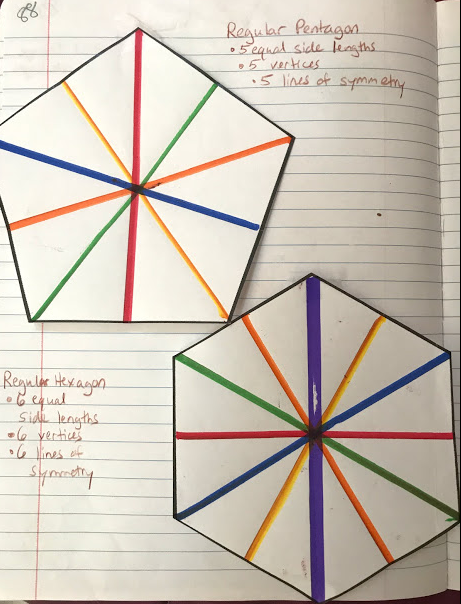 88
Regular Pentagon
• 5 equal side lengths
• 5 vertices
• 5 lines of symmetry
Regular Hexagon
• 6 equal
side lengths
• 6 vertices
• 6 lines of
symmetry